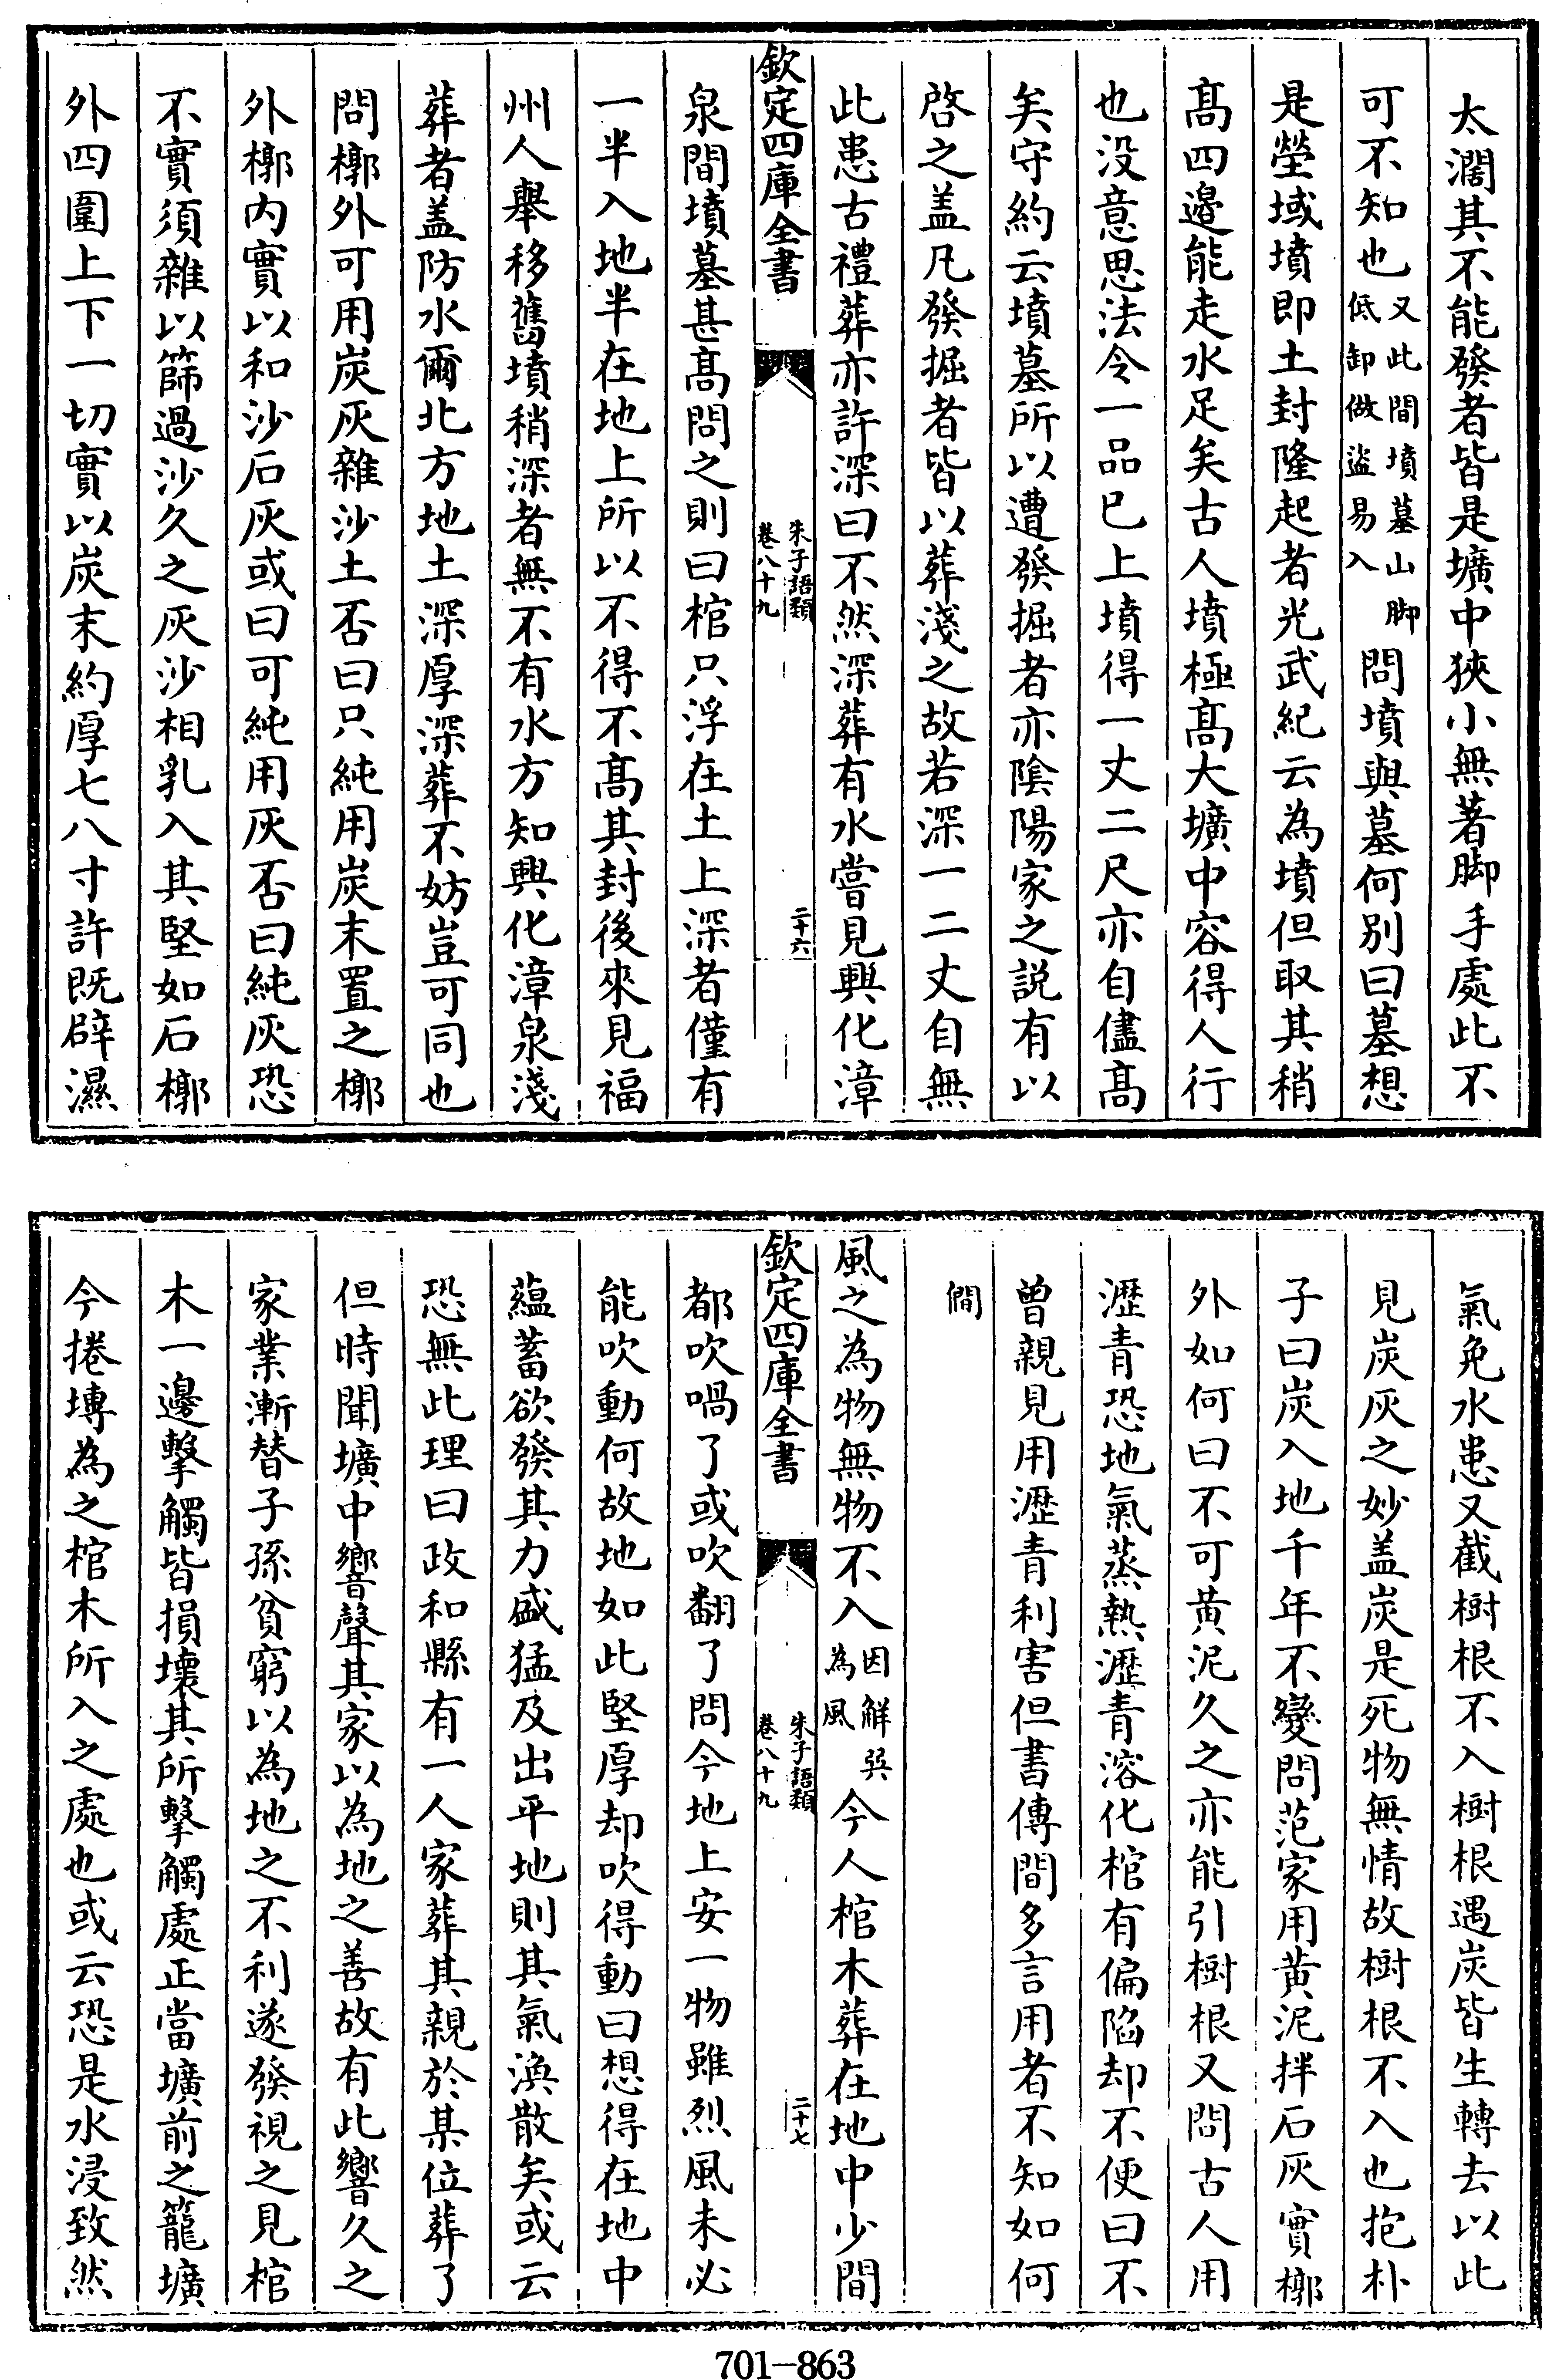 太濶其不能發者皆是壙中狹小無著脚手處此不
可不知也又此間墳墓山脚低卸做盜易入問墳與墓何别曰墓想
是塋域墳即土封隆起者光武紀云為墳但取其稍
髙四邉能走水足矣古人墳極髙大壙中容得人行
也没意思法令一品已上墳得一丈二尺亦自儘髙
矣守約云墳墓所以遭發掘者亦隂陽家之説有以
啓之盖凡發掘者皆以葬淺之故若深一二丈自無
此患古禮葬亦許深曰不然深葬有水嘗見興化漳
欽定四庫全書
朱子語類
卷八十九
二十六
泉間墳墓甚髙問之則曰棺只浮在土上深者僅有
一半入地半在地上所以不得不髙其封後來見福
州人舉移舊墳稍深者無不有水方知興化漳泉淺
葬者盖防水爾北方地土深厚深葬不妨豈可同也
問槨外可用炭灰雜沙土否曰只純用炭末置之槨
外槨内實以和沙石灰或曰可純用灰否曰純灰恐
不實須雜以篩過沙久之灰沙相乳入其堅如石槨
外四圍上下一切實以炭末約厚七八寸許既辟濕
氣免水患又截樹根不入樹根遇炭皆生轉去以此
見炭灰之妙盖炭是死物無情故樹根不入也抱朴
子曰炭入地千年不變問范家用黄泥拌石灰實槨
外如何曰不可黄泥久之亦能引樹根又問古人用
瀝青恐地氣蒸熱瀝青溶化棺有偏陷却不便曰不
曾親見用瀝青利害但書傳間多言用者不知如何
僩
風之為物無物不入因解巽為風今人棺木葬在地中少間
欽定四庫全書
朱子語類
卷八十九
二十七
都吹喎了或吹翻了問今地上安一物雖烈風未必
能吹動何故地如此堅厚却吹得動曰想得在地中
蘊蓄欲發其力盛猛及出平地則其氣渙散矣或云
恐無此理曰政和縣有一人家葬其親於某位葬了
但時聞壙中響聲其家以為地之善故有此響久之
家業漸替子孫貧窮以為地之不利遂發視之見棺
木一邊擊觸皆損壞其所擊觸處正當壙前之籠壙
今捲塼為之棺木所入之處也或云恐是水浸致然
701-863